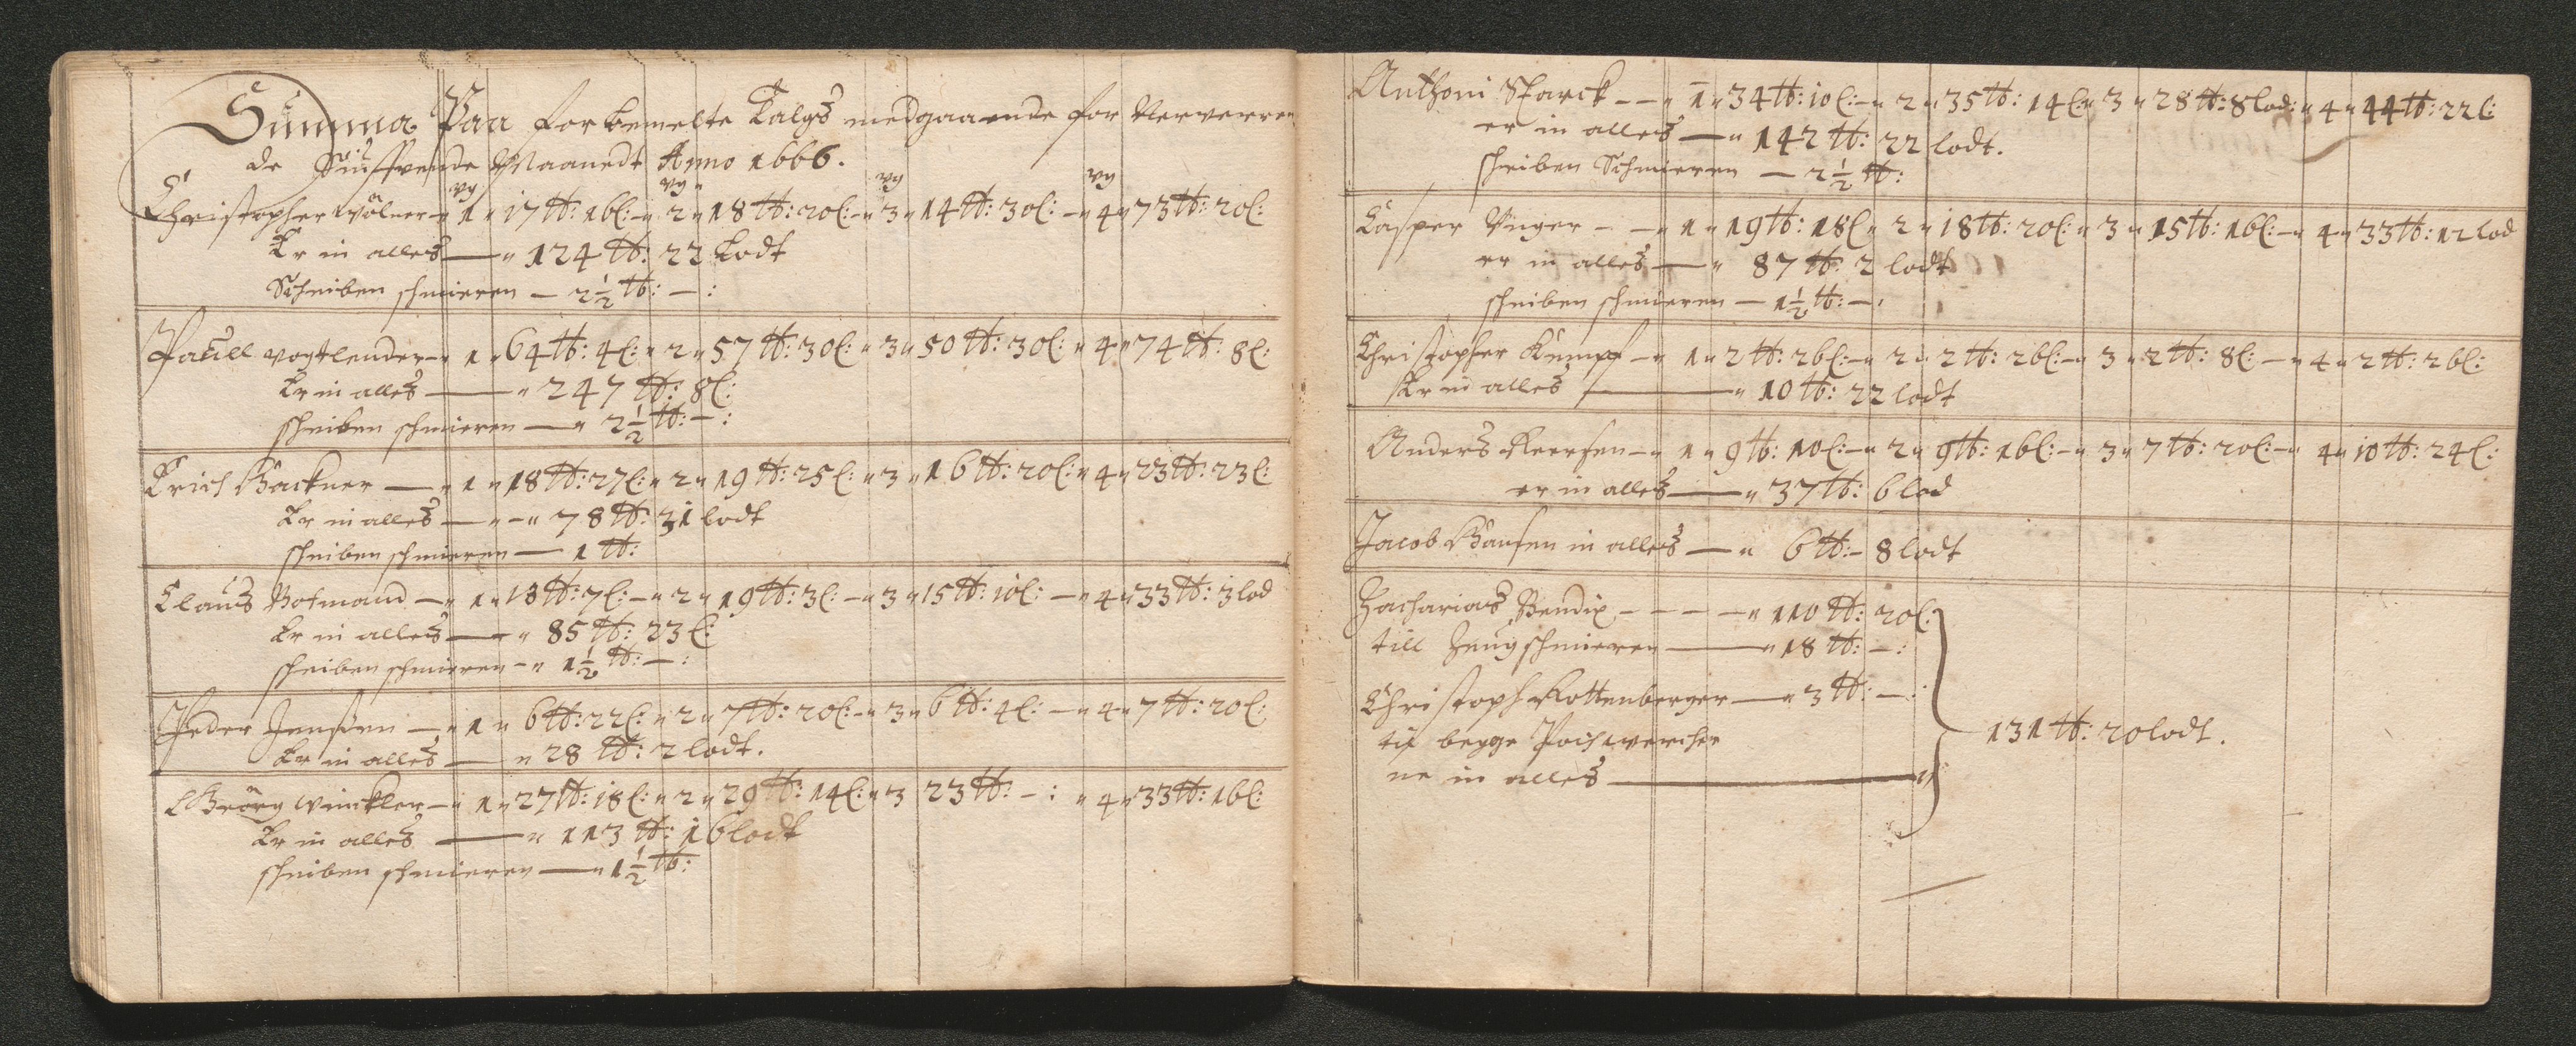 Summa Paa forbemelte Talgs medgaaende for Nerverren
de Siuffvende Maanedt Anno 1666.
vg vg vg vg
Christopher Wölner — 1 „ 17 ℔: 16 l: — 2 „ 18 ℔: 20 l: — 3 „ 14 ℔: 30 l: — 4 „ 73 ℔: 20 l:
Er in alles — „ 124 ℔: 22 Lodt
Scheiben schmieren — 2½ ℔: — :
Paull Vogtlender — „ 1 „ 64 ℔: 4 l: „ 2 „ 57 ℔: 30 l: „ 3 „ 50 ℔: 30 l: „ 4 „ 74 ℔: 8 l:
Er in alles — „ 247 ℔: 8 l:
scheiben schmieren — „ 2½ ℔: — :
Erich Backner — „ 1 „ 18 ℔: 27 l: „ 2 „ 19 ℔: 25 l: „ 3 „ 16 ℔: 20 l: „ 4 „ 23 ℔: 23 l:
Er in alles — „ — „ 78 ℔: 31 lodt
scheiben schmieren — 1 ℔:
Clauß Botmand — „ 1 „ 18 ℔: 7 l: — „ 2 „ 19 ℔: 3 l: — „ 3 „ 15 ℔: 10 l: — „ 4 „ 33 ℔: 3 lod
Er in alles — „ 85 ℔: 23 l:
scheiben schmieren — „ 1½ ℔: — :
Peder Jenßen — „ 1 „ 6 ℔: 22 l: „ 2 „ 7 ℔: 20 l: — „ 3 „ 6 ℔: 4 l: — „ 4 „ 7 ℔: 20 l:
Er in alles — „ 28 ℔: 2 lodt.
Georg Winckler — „ 1 „ 27 ℔: 18 l: „ 2 „ 29 ℔: 14 l: „ 3 23 ℔: — : „ 4 „ 33 ℔: 16 l:
Er in alles — „ 113 ℔: 16 lodt
scheiben schmieren — „ 1½ ℔:
Anthoni Starck — — „ 1 „ 34 ℔: 10 l: — „ 2 „ 35 ℔: 14 l: „ 3 „ 28 ℔: 8 lod: „ 4 „ 44 ℔: 22 l:
er in alles — „ 142 ℔: 22 lodt.
scheiben Schmieren — 2½ ℔:
Casper Unger — — „ 1 „ 19 ℔: 18 l „ 2 „ 18 ℔: 20 l: „ 3 „ 15 ℔: 16 l: — „ 4 „ 33 ℔: 12 lod
er in alles — „ 87 ℔: 2 lodt
scheiben schmieren — 1½ ℔: — :
Christopher Kempf — „ 1 „ 2 ℔: 26 l: — „ 2 „ 2 ℔: 26 l: — „ 3 „ 2 ℔: 8 l: — „ 4 „ 2 ℔: 26 l:
Er in alles — „ 10 ℔: 22 lodt
Anders Keersen — „ 1 „ 9 ℔: 10 l: — „ 2 „ 9 ℔: 16 l: — „ 3 „ 7 ℔: 20 l: — „ 4 „ 10 ℔: 24 l:
er in alles — „ 37 ℔: 6 lod
Jacob Hansen in alles — „ 6 ℔: — 8 lodt
Zacharias Bendix — — — — „ 110 ℔: 20 l:
till Zeug schmieren — „ 18 ℔: — :
Christoph Rottenberger — „ 3 ℔: — :
til begge Pochwercher
ne in alles — „ 131 ℔: 20 lodt.